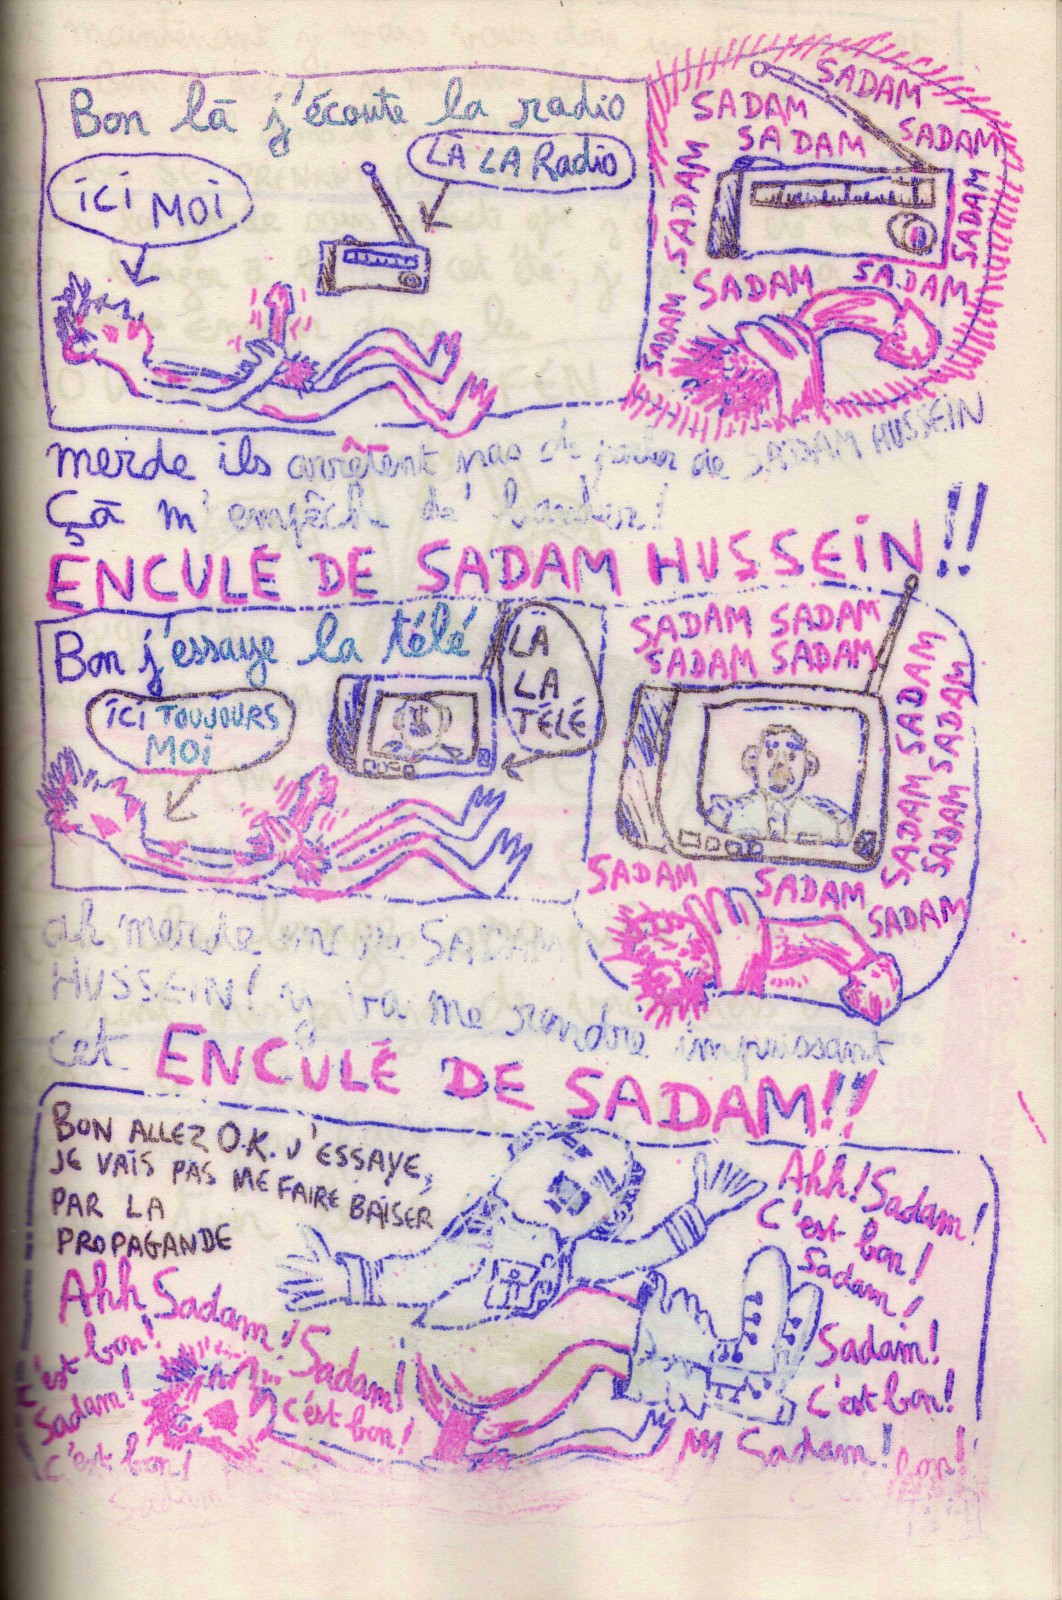 Bon là j'écoute la radio
LÀ LA Radio
ici MOI
SADAM
SADAM
SADAM
SADAM
SADAM
SADAM
SADAM
SADAM
SADAM
SADAM
merde ils arrêtent pas de parler de SADAM HUSSEIN
Çà m'empêch de bander!
ENCULÉ DE SADAM HUSSEiN!!
Bon j'essaye la télé
LÀ
LA
TÉLÉ
ici TOUJOURS
MOi
SADAM SADAM
SADAM SADAM
SADAM SADAM
SADAM SADAM
SADAM
SADAM
SADAM
ah merde SADAM
HUSSEiN! y va me rendre impuissant
cet ENCULÉ DE SADAM!!
BON ALLEZ O.K. J'ESSAYE,
JE VAIS PAS ME FAIRE BAISER
PAR LA
PROPAGANDE
Ahh! Sadam!
C'est bon!
Sadam!
Ahh Sadam!
c'est bon!
Sadam!
c'est bon!
Sadam!
c'est bon!
Sadam!
C'est bon!
Sadam!
bon!
Sadam